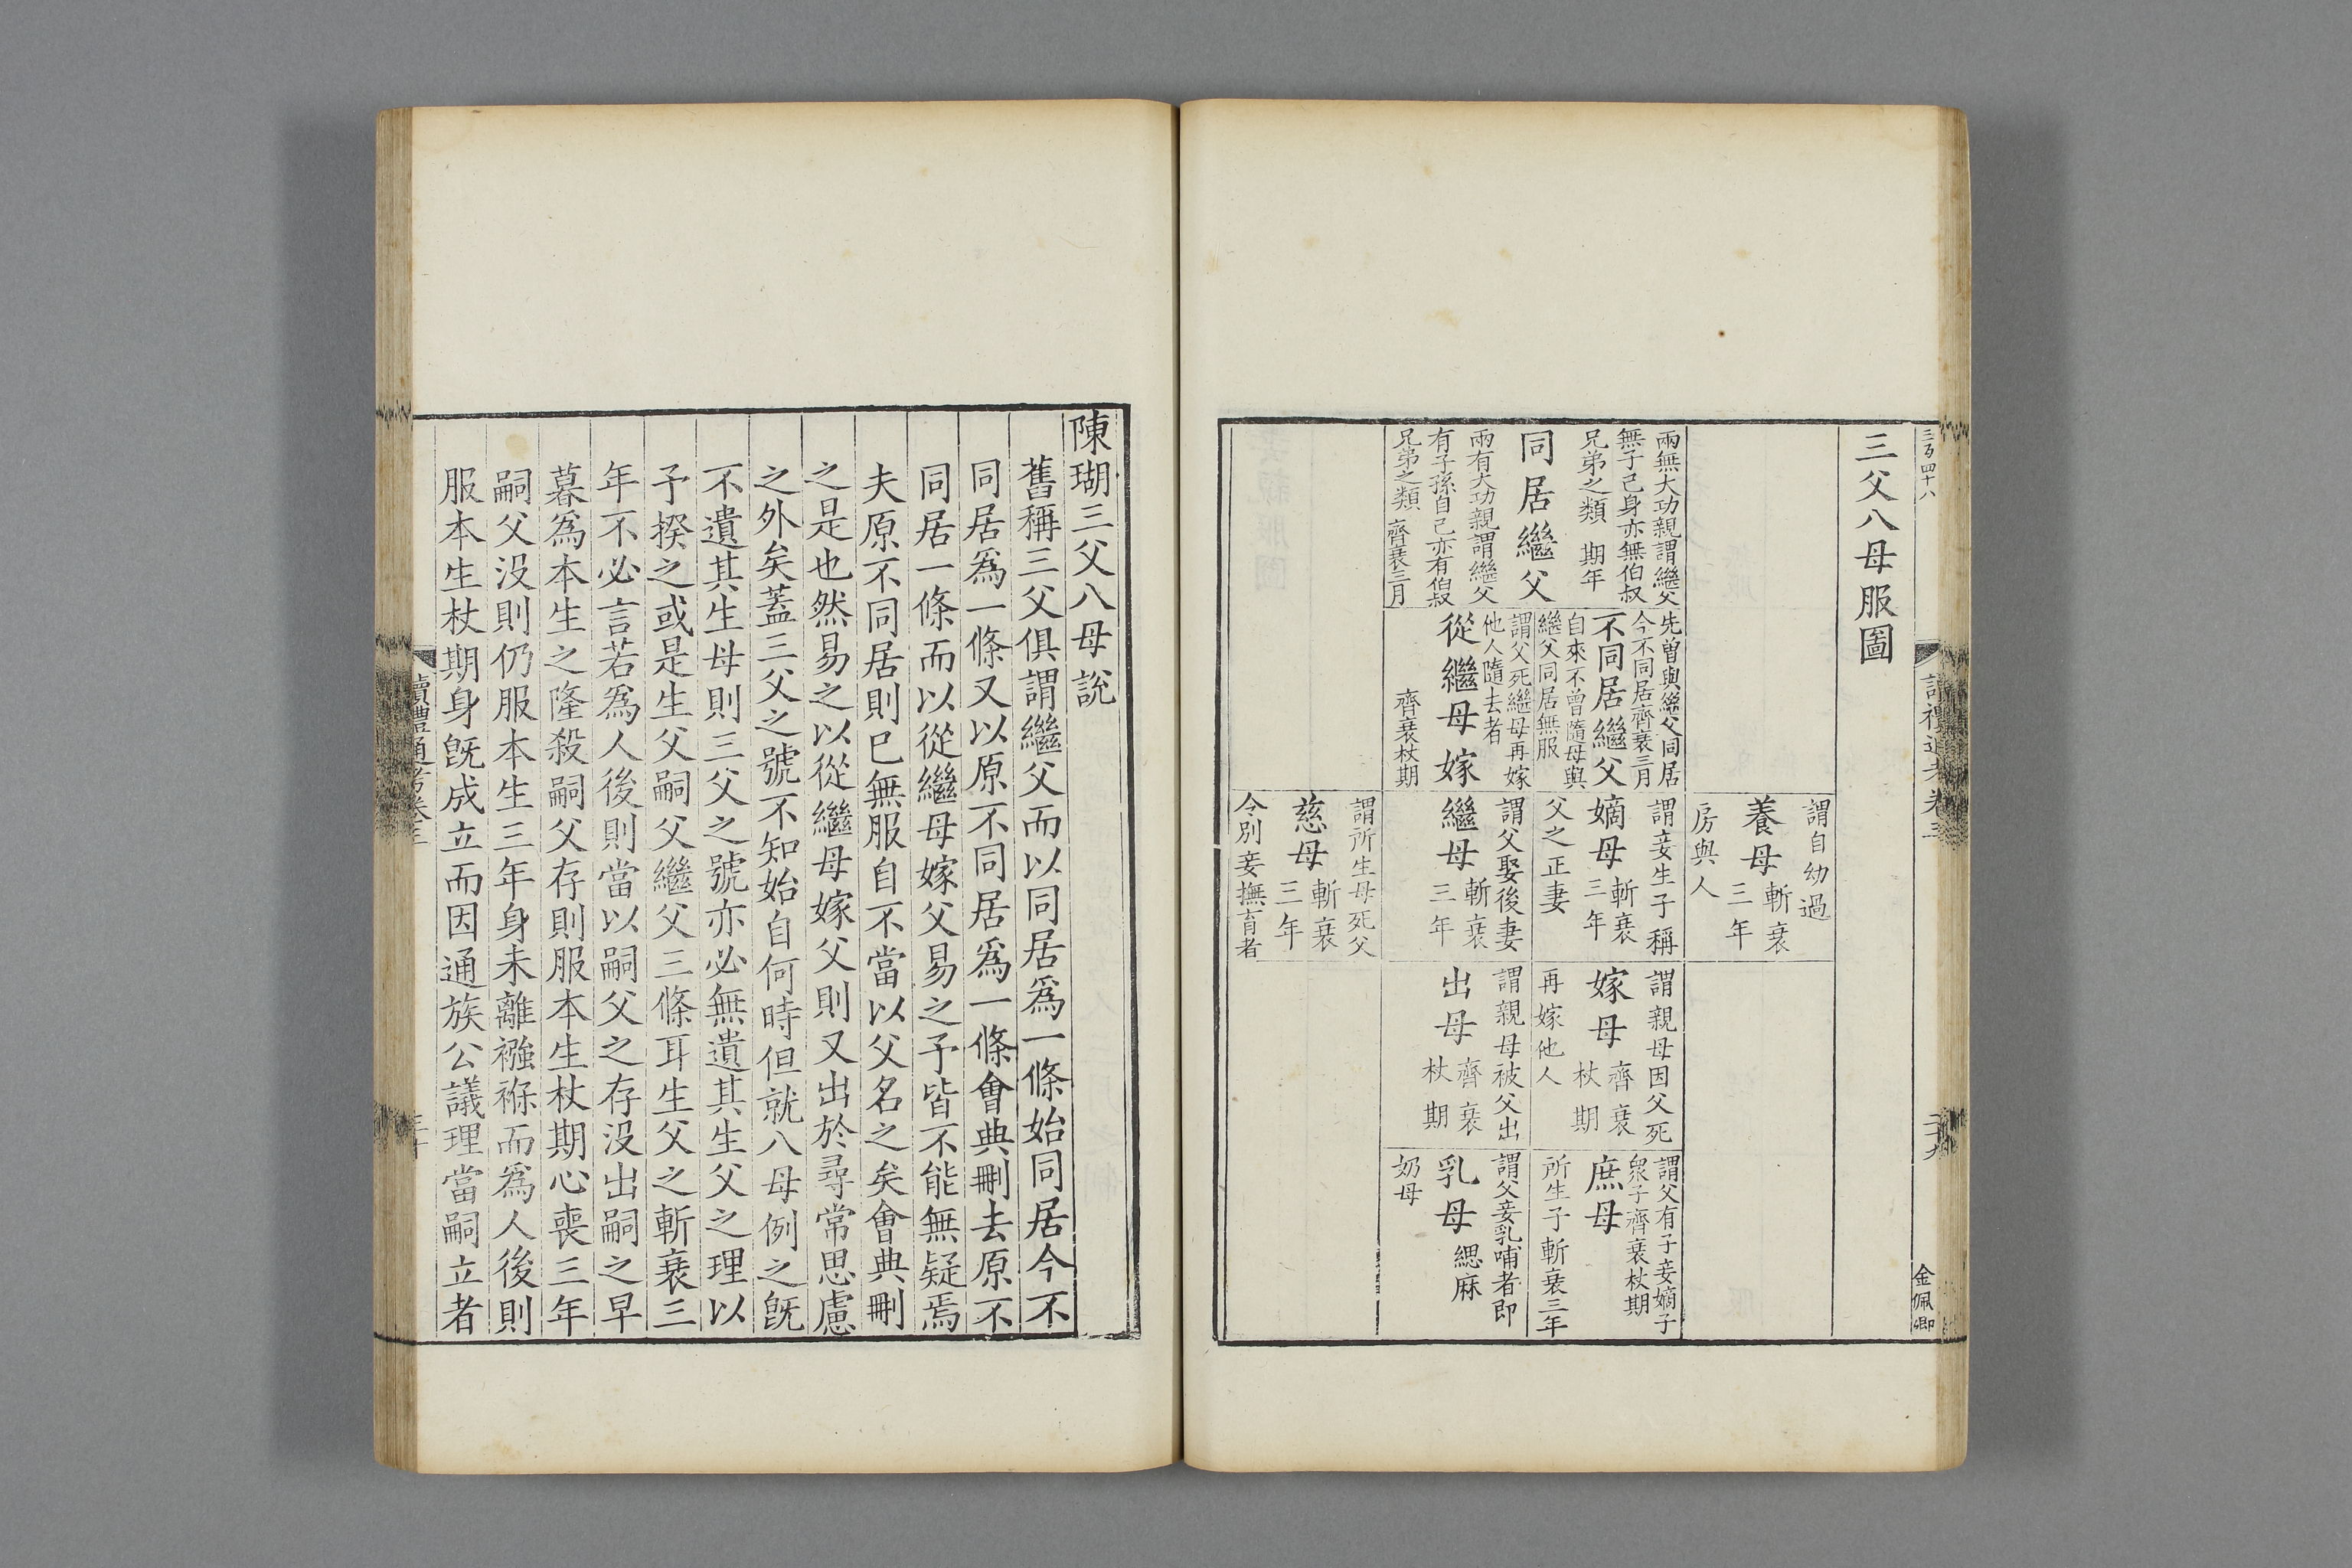 三百四十八
卷三
二十九
金佩卿
三父八母服圖
謂自幼過
養母 斬衰三年
房與人
兩無大功親謂繼父
無子己身亦無伯叔
兄弟之類 期年
同居繼父
兩有大功親謂繼父
有子孫自己亦有伯叔
兄弟之類 齊衰三月
先曾與繼父同居
今不同居齊衰三月
不同居繼父
自來不曾隨母與
繼父同居無服
謂父死繼母再嫁
他人隨去者
從繼母嫁
齊衰杖期
謂妾生子稱
嫡母 斬衰三年
父之正妻
謂父娶後妻
繼母 斬衰三年
謂所生母死父
慈母 斬衰三年
令別妾撫育者
謂親母因父死
嫁母 齊衰杖期
再嫁他人
謂親母被父出
出母 齊衰杖期
謂父有子妾嫡子
衆子齊衰杖期
庶母
所生子斬衰三年
謂父妾乳哺者即
乳母 緦麻
奶母
陳瑚三父八母說
舊稱三父俱謂繼父而以同居爲一條始同居今不
同居爲一條又以原不同居爲一條會典刪去原不
同居一條而以從繼母嫁父易之予皆不能無疑焉
夫原不同居則已無服自不當以父名之矣會典刪
之是也然易之以從繼母嫁父則又出於尋常思慮
之外矣蓋三父之號不知始自何時但就八母例之旣
不遺其生母則三父之號亦必無遺其生父之理以
予揆之或是生父嗣父繼父三條耳生父之斬衰三
年不必言若爲人後則當以嗣父之存沒出嗣之早
暮爲本生之隆殺嗣父存則服本生杖期心喪三年
嗣父沒則仍服本生三年身未離襁褓而爲人後則
服本生杖期身旣成立而因通族公議理當嗣立者
讀禮通考卷三
三十